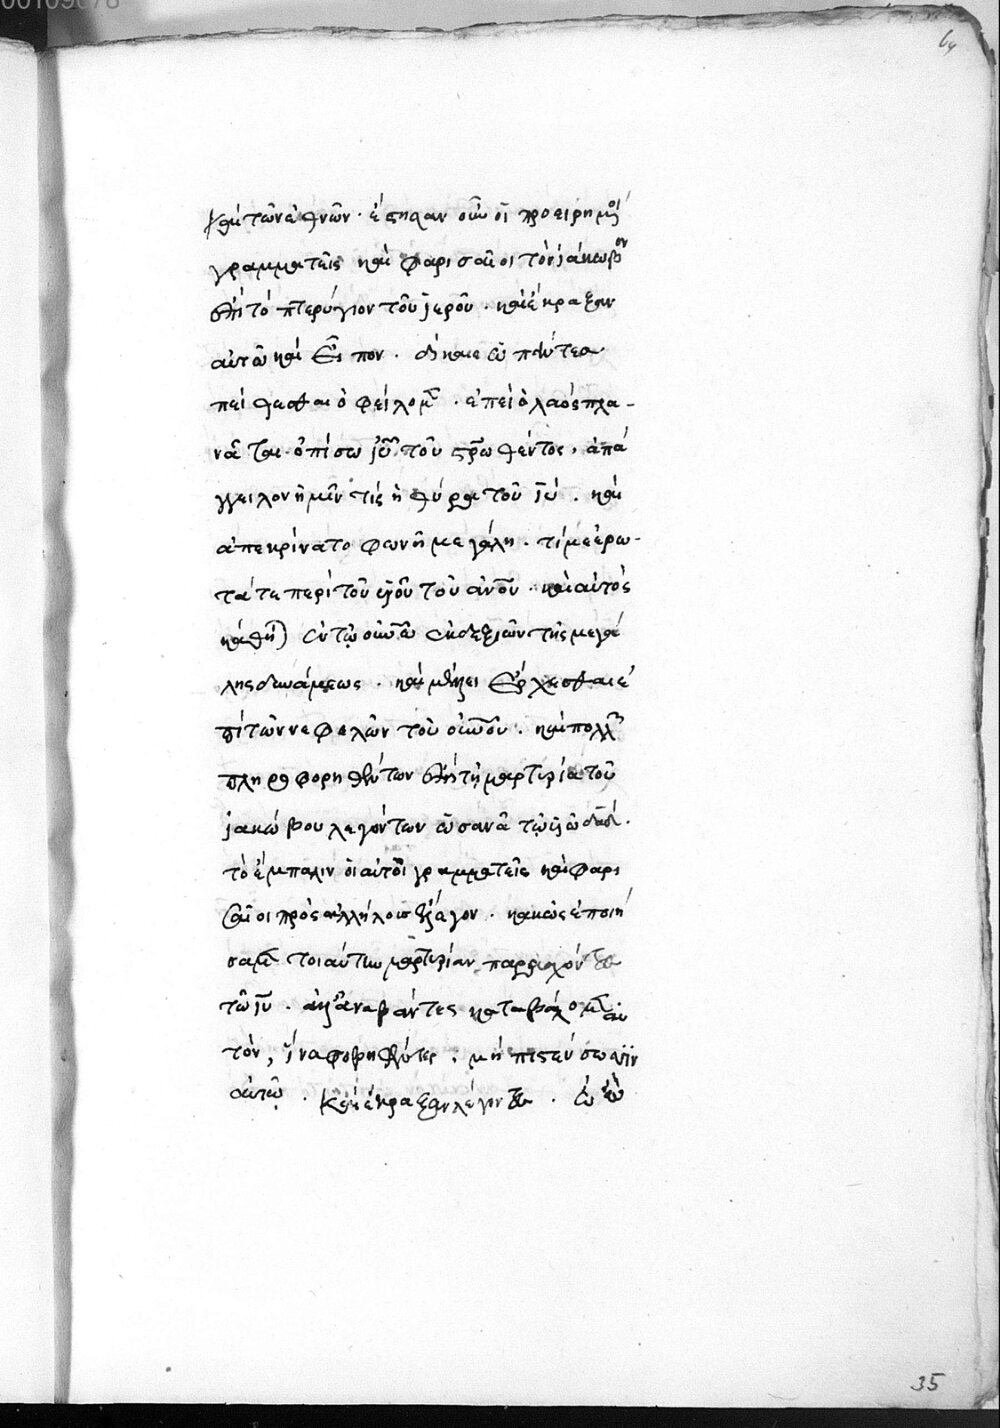 00109878
64
καὶ τῶν ἐθνῶν · ἔστησαν οὖν οἱ προειρημένοι
γραμματεῖς καὶ φαρισαῖοι τὸν ἰάκωβον
ἐπὶ τὸ πτερύγιον τοῦ ἱεροῦ · καὶ ἔκραξαν
αὐτῶ καὶ εἶπον · δίκαιε ὧ πάντες
πείθεσθαι ὀφείλομεν · ἐπεὶ ὁ λαὸς πλα-
νᾶται ὀπίσω ἰῦ τοῦ στρωθέντος · ἀπά
γγειλον ἡμῖν τίς ἡ θύρα τοῦ ἰῦ · καὶ
ἀπεκρίνατο φωνῆ μεγάλη · τί με ἐρω-
τάτε περὶ τοῦ υἱοῦ τοῦ ἀνου · καὶ αὐτὸς
κάθηται ἐν τῷ οὐνῶ ἐκ δεξιῶν τῆς μεγά
λης δυνάμεως · καὶ μέλλει ἔρχεσθαι ἐ
πὶ τῶν νεφελῶν τοῦ οὐνοῦ · καὶ πολλῶν
πληροφορηθέντων ἐπὶ τῆ μαρτυρία τοῦ
ἰακώβου λεγόντων ὡσανὰ τῷ υἱῶ δαδ ·
τὸ ἔμπαλιν οἱ αὐτοὶ γραμματεῖς καὶ φαρι
σαῖοι πρὸς ἀλλήλους ἔλεγον · κακῶς ἐποιή
σαμεν τοιαύτην μαρτυρίαν παρασχόντες
τῶ ἰῦ · ἀλλ' ἀναβάντες καταβάλομεν αὐ
τὸν, ἵνα φοβηθέντες · μὴ πιστεύσωσιν
αὐτῷ · καὶ ἔκραξαν λέγοντες · ὦ ὦ
35